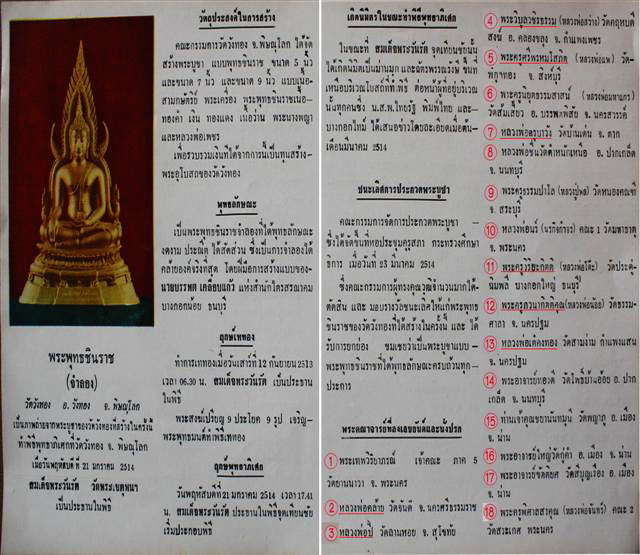 วัตถุประสงค์ในการสร้าง
คณะกรรมการวัดวังทอง จ.พิษณุโลก ได้จัด
สร้างพระบูชา แบบพุทธชินราช ขนาด 5 นิ้ว
และขนาด 7 นิ้ว และขนาด 9 นิ้ว แบบเนื้อ
สามกษัตริย์ พระเครื่อง พระพุทธชินราชเนื้อ
ทองคำ เงิน ทองแดง เนื้อว่าน พระนางพญา
และหลวงพ่อเพชร
เพื่อรวบรวมเงินที่ได้จากการนี้เป็นทุนสร้าง-
พระอุโบสถของวัดวังทอง
พุทธลักษณะ
เป็นพระพุทธชินราชจำลองที่ได้พุทธลักษณะ
งดงาม ประณีต ได้สัดส่วน ซึ่งเป็นการจำลองได้
คล้ายองค์จริงที่สุด โดยฝีมือการสร้างแบบของ-
นายบรรพต เคลือบแก้ว แห่งสำนักใครสรณาคม
บางกอกน้อย ธนบุรี
ฤกษ์เททอง
ทำการเททองเมื่อวันเสาร์ที่ 12 กันยายน 2513
เวลา 06.30 น. สมเด็จพระวันรัต เป็นประธาน
ในพิธี
พระสงฆ์เปรียญ 9 ประโยค 9 รูป เจริญ-
พระพุทธมนต์ที่พิธีเททอง
ฤกษ์พุทธาภิเสก
วันพฤหัสบดีที่ 21 มกราคม 2514 เวลา 17.41
น. สมเด็จพระวันรัต ประธานในพิธีจุดเทียนชัย
เริ่มประกอบพิธี
พระพุทธชินราช
(จำลอง)
วัดวังทอง อ.วังทอง จ.พิษณุโลก
เป็นภาพถ่ายจากพระบูชาของวัดวังทองที่สร้างในครั้งนี้
ทำพิธีพุทธาภิเศกที่วัดวังทอง จ.พิษณุโลก
เมื่อวันพฤหัสบดี ที่ 21 มกราคม 2514
สมเด็จพระวันรัต วัดพระเชตุพนฯ
เป็นประธานในพิธี
เกิดนิมิตรในขณะทำพิธีพุทธาภิเสก
ในขณะที่ สมเด็จพระวันรัต จุดเทียนชัยนั้น
ได้เกิดนิมิตเป็นม่านมุก และฉัตรพรรณรังษี ขึ้นที่
เหนือบริเวณโบสถ์ที่ทำพิธี ต่อหน้าผู้ที่อยู่บริเวณ
นั้นทุกคนซึ่ง น.ส.พ.ไทยรัฐ พิมพ์ไทย และ-
บางกอกไทม์ ได้เสนอข่าวโดยละเอียดเมื่อต้น-
เดือนมีนาคม 2514
ชนะเลิศการประกวดพระบูชา
คณะกรรมการจัดการประกวดพระบูชา —
ซึ่งได้จัดขึ้นที่หอประชุมคุรุสภา กระทรวงศึกษา
ธิการ เมื่อวันที่ 23 มีนาคม 2514
ซึ่งคณะกรรมการผู้ทรงคุณวุฒิจำนวนมากได้-
ตัดสิน และ มอบรางวัลชนะเลิศให้แก่พระพุทธ
ชินราชของวัดวังทองที่ได้สร้างในครั้งนี้ และ ได้
รับการยกย่อง ชมเชยว่าเป็นพระบูชาแบบ-
พระพุทธชินราชที่ได้พุทธลักษณะครบถ้วนทุก-
ประการ
พระคณาจารย์ที่ลงเลขยันต์และนั่งปรก
1 พระเทพวิริยาภรณ์ เจ้าคณะ ภาค 5
วัดยานนาวา จ. พระนคร
2 หลวงพ่อคล้าย วัดจันดี จ. นครศรีธรรมราช
3 หลวงพ่อปี้ วัดลานหอย จ. สุโขทัย
4 พระวิบูลวชิรธรรม (หลวงพ่อสว่าง) วัดคฤหบดี
สงฆ์ อ. คลองขลุง จ. กำแพงเพชร
5 พระครูศรีพรหมโสภิต (หลวงพ่อแพ) วัด-
พิกุลทอง จ. สิงห์บุรี
6 พระครูนิยุตธรรมศาสน์
วัดส้มเสี้ยว อ. บรรพตพิสัย จ. นครสวรรค์
7 หลวงพ่อครูบาวัง วัดบ้านเด่น จ. ตาก
8 หลวงพ่อชื่นวัดตำหนักเหนือ อ. ปากเกล็ด
จ. นนทบุรี
9 พระครูธรรมปาโล (หลวงปู่พล) วัดหนองคณฑี
จ. สระบุรี
10 หลวงพ่อเมร์ คณะ 1 วัดมหาธาตุ
จ. พระนคร
11 พระครูวิริยะกิตติ (หลวงพ่อโต๊ะ) วัดประดู่-
ฉิมพลี บางกอกใหญ่ ธนบุรี
12 พระครูภาวนากิตติคุณ(หลวงพ่อน้อย) วัดธรรม-
ศาลา จ. นครปฐม
13 หลวงพ่อเต๋คงทอง วัดสามง่าม กำแพงแสน
จ. นครปฐม
14 พระอาจารย์ทองดี วัดโพธิ์บ้านอ้อย อ. ปาก
เกล็ด จ. นนทบุรี
15 ท่านเจ้าคุณชยานันทมุนี วัดพญาภู อ. เมือง
จ. น่าน
16 พระอาจารย์ใหญ่วัดกู่คำ อ. เมือง จ. น่าน
17 พระอาจารย์ขัตติยศ วัดสีบุญเรือง อ. เมือง
จ. น่าน
18 พระครูพิศาลสรคุณ (หลวงพ่อจันทร์) คณะ 2
วัดสระเกศ พระนคร